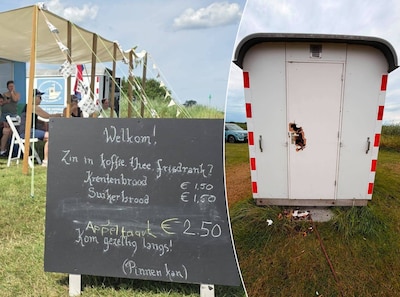 Welkom!
Zin in koffie, thee, frisdrank?
Krentenbrood € 1,50
Suikerbrood € 1,50
Appeltaart € 2.50
Kom gezellig langs!
(Pinnen kan)